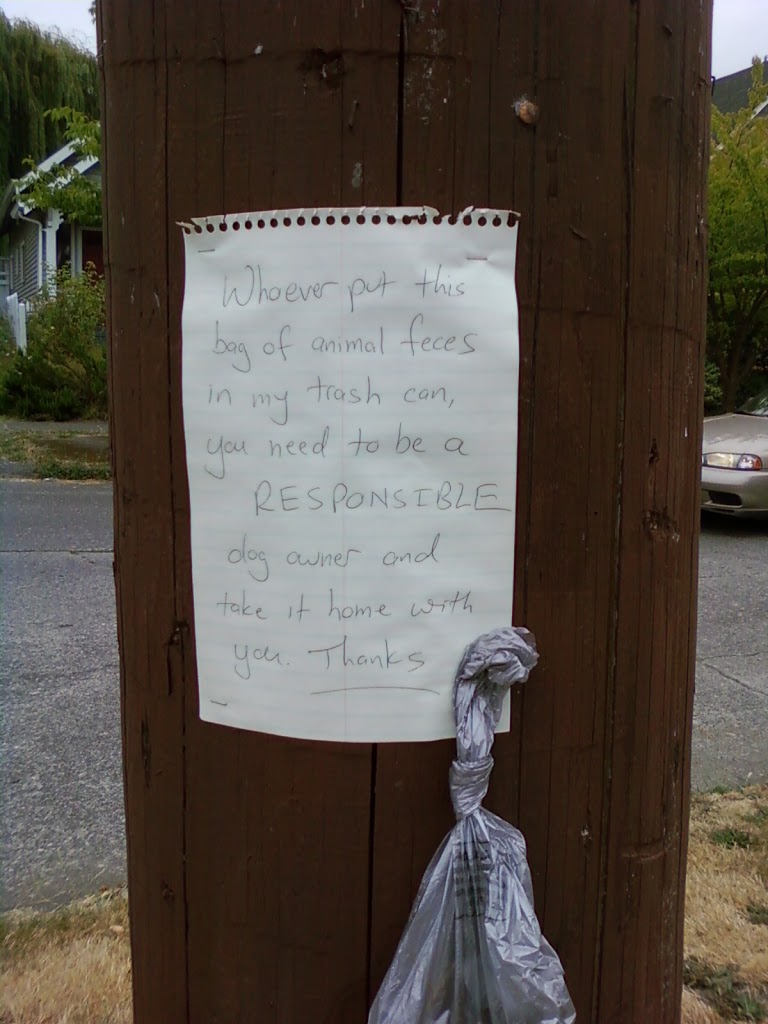 Whoever put this
bag of animal feces
in my trash can,
you need to be a
RESPONSIBLE
dog owner and
take it home with
you. Thanks